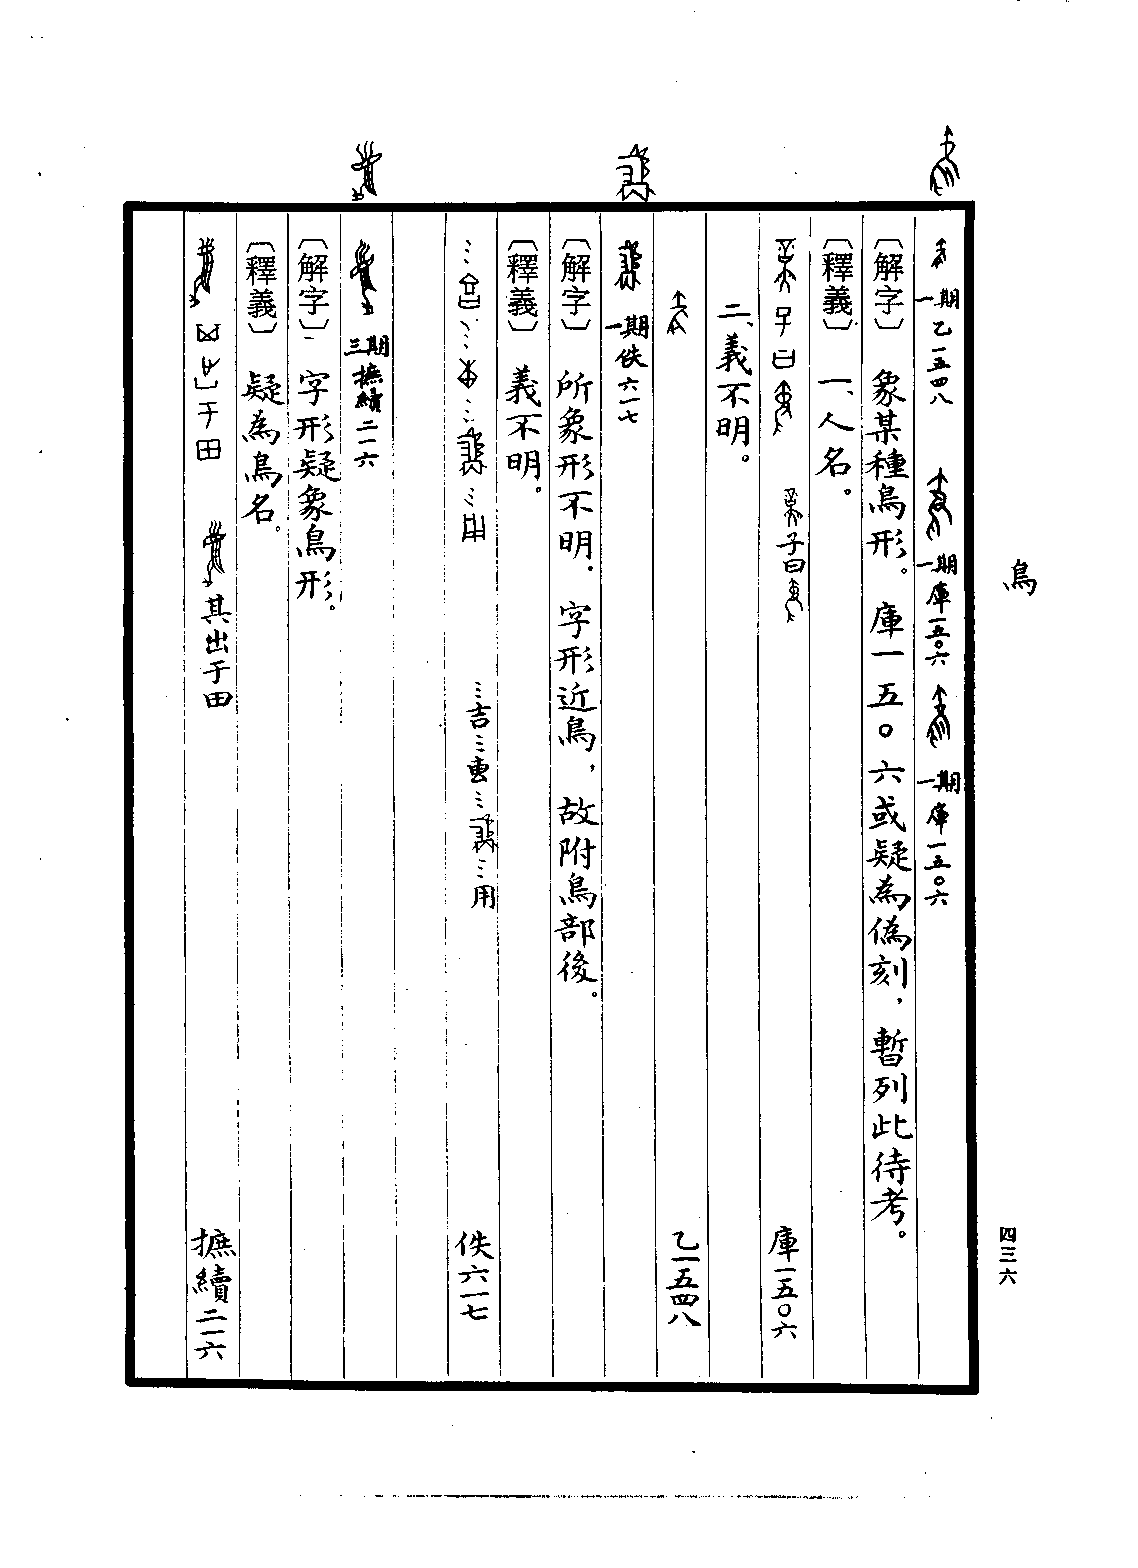 鳥
四三六
一期 乙一五四八 一期 庫一五〇六 一期 庫一五〇六
〔解字〕象某種鳥形。庫一五〇六或疑為僞刻，暫列此待考。
〔釋義〕一、人名。
子曰 子曰 庫一五〇六
二、義不明。
乙一五四八
一期 佚六一七
〔解字〕所象形不明．字形近鳥，故附鳥部後。
〔釋義〕義不明。
…吉…叀…用 佚六一七
三期 摭續二一六
〔解字〕字形疑象鳥形。
〔釋義〕疑為鳥名。
于田 其出于田 摭續二一六